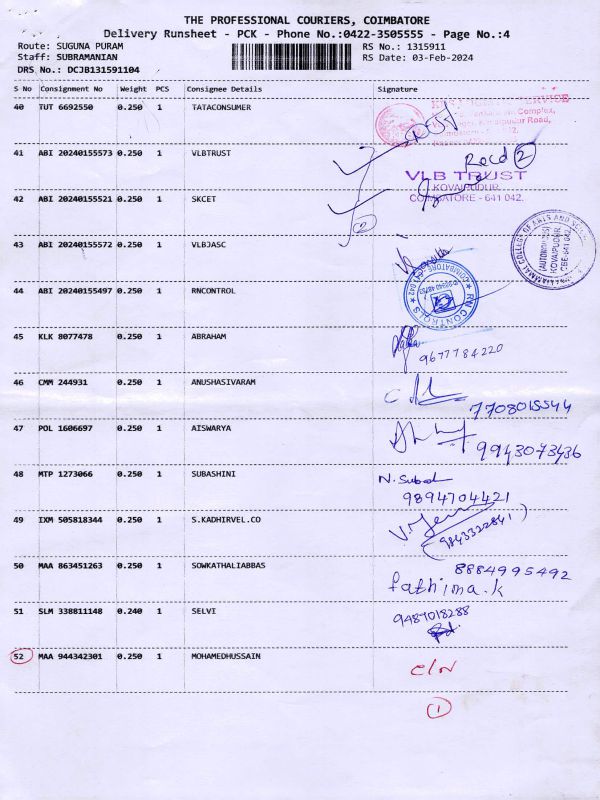 THE PROFESSIONAL COURIERS, COIMBATORE
Delivery Runsheet - PCK - Phone No.:0422-3505555 - Page No.:4
Route: SUGUNA PURAM RS No.: 1315911
Staff: SUBRAMANIAN RS Date: 03-Feb-2024
DRS No.: DCJB131591104
S No Consignment No Weight PCS Consignee Details Signature
40 TUT 6692550 0.250 1 TATACONSUMER
41 ABI 20240155573 0.250 1 VLBTRUST
Recd 2
VLB TRUST
KOVAIPUDUR,
COIMBATORE - 641 042.
42 ABI 20240155521 0.250 1 SKCET
2
43 ABI 20240155572 0.250 1 VLBJASC
COLLEGE OF ARTS AND
(AUTONOMOUS)
KOVAIPUDUR
CBE-641 042
44 ABI 20240155497 0.250 1 RNCONTROL
CONTROLS
45 KLK 8077478 0.250 1 ABRAHAM
9677784220
46 CMM 244931 0.250 1 ANUSHASIVARAM
7708015544
47 POL 1606697 0.250 1 AISWARYA
9943073436
48 MTP 1273066 0.250 1 SUBASHINI N. Subad
9894704421
49 IXM 505818344 0.250 1 S.KADHIRVEL.CO
(9843322841)
50 MAA 863451263 0.250 1 SOWKATHALIABBAS 8884995492
fathima.k
51 SLM 338811148 0.240 1 SELVI 9487018288
52 MAA 944342301 0.250 1 MOHAMEDHUSSAIN
C/N
1